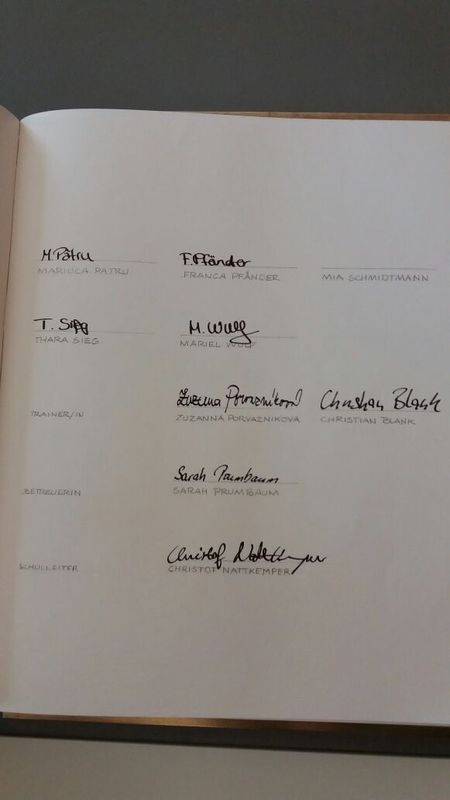 M. Patru F. Pfänder
MARIUCA PATRU FRANCA PFÄNDER MIA SCHMIDTMANN
T. Sieg M. Wulf
THARA SIEG MARIEL WULF
Zuzanna Porovazníková Christian Blank
TRAINER/IN ZUZANNA PORVAZNIKOVA CHRISTIAN BLANK
Sarah Prumbaum
BETREUERIN SARAH PRUMBAUM
Christof Nattkemper
SCHULLEITER CHRISTOF NATTKEMPER